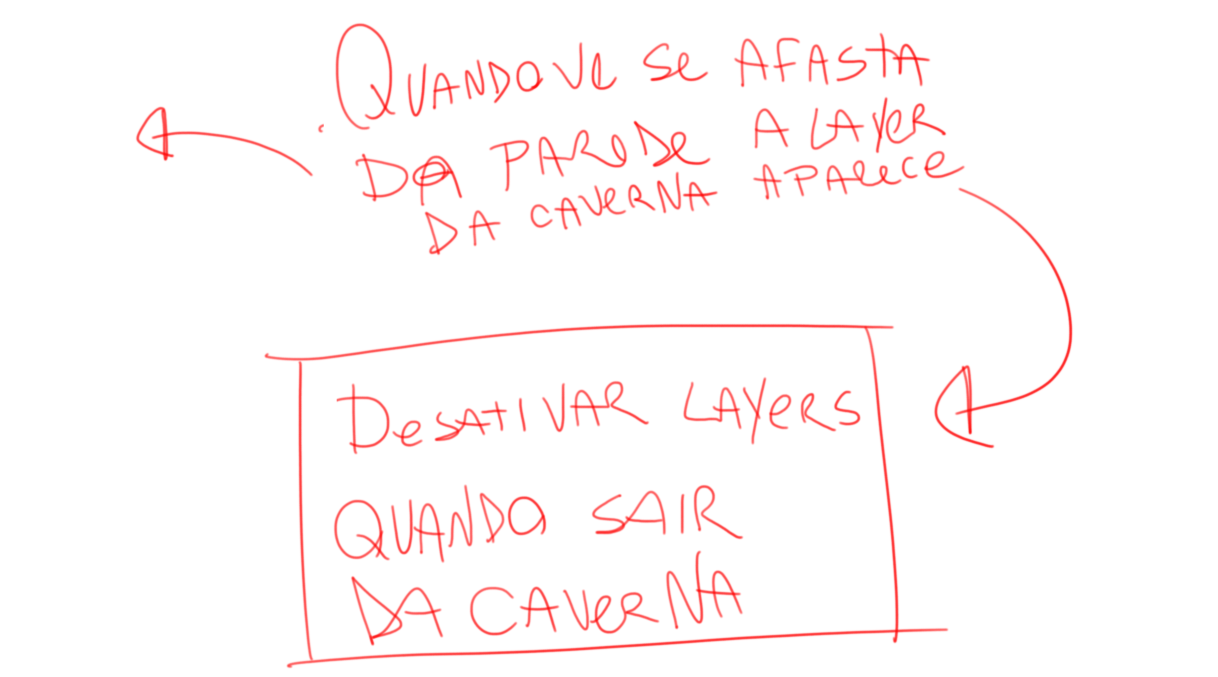 QUANDO VC SE AFASTA
DA PAREDE A LAYER
DA CAVERNA APARECE
DESATIVAR LAYERS
QUANDO SAIR
DA CAVERNA